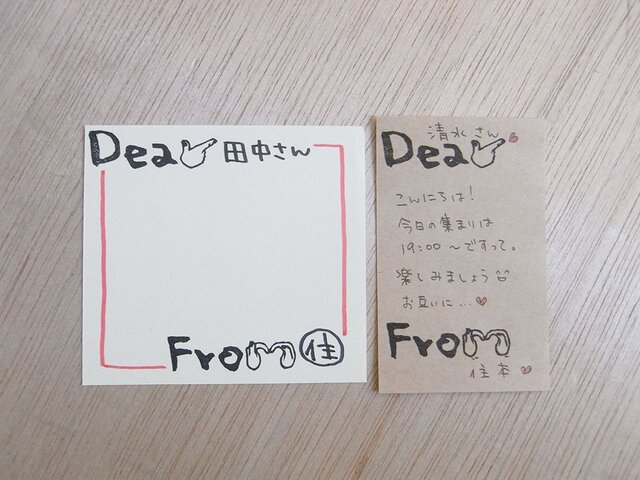 Dear 田中さん
From 佳
清水さん
Dear
こんにちは!
今日の集まりは
19:00〜ですって。
楽しみましょう
お互いに…
From
佳奈